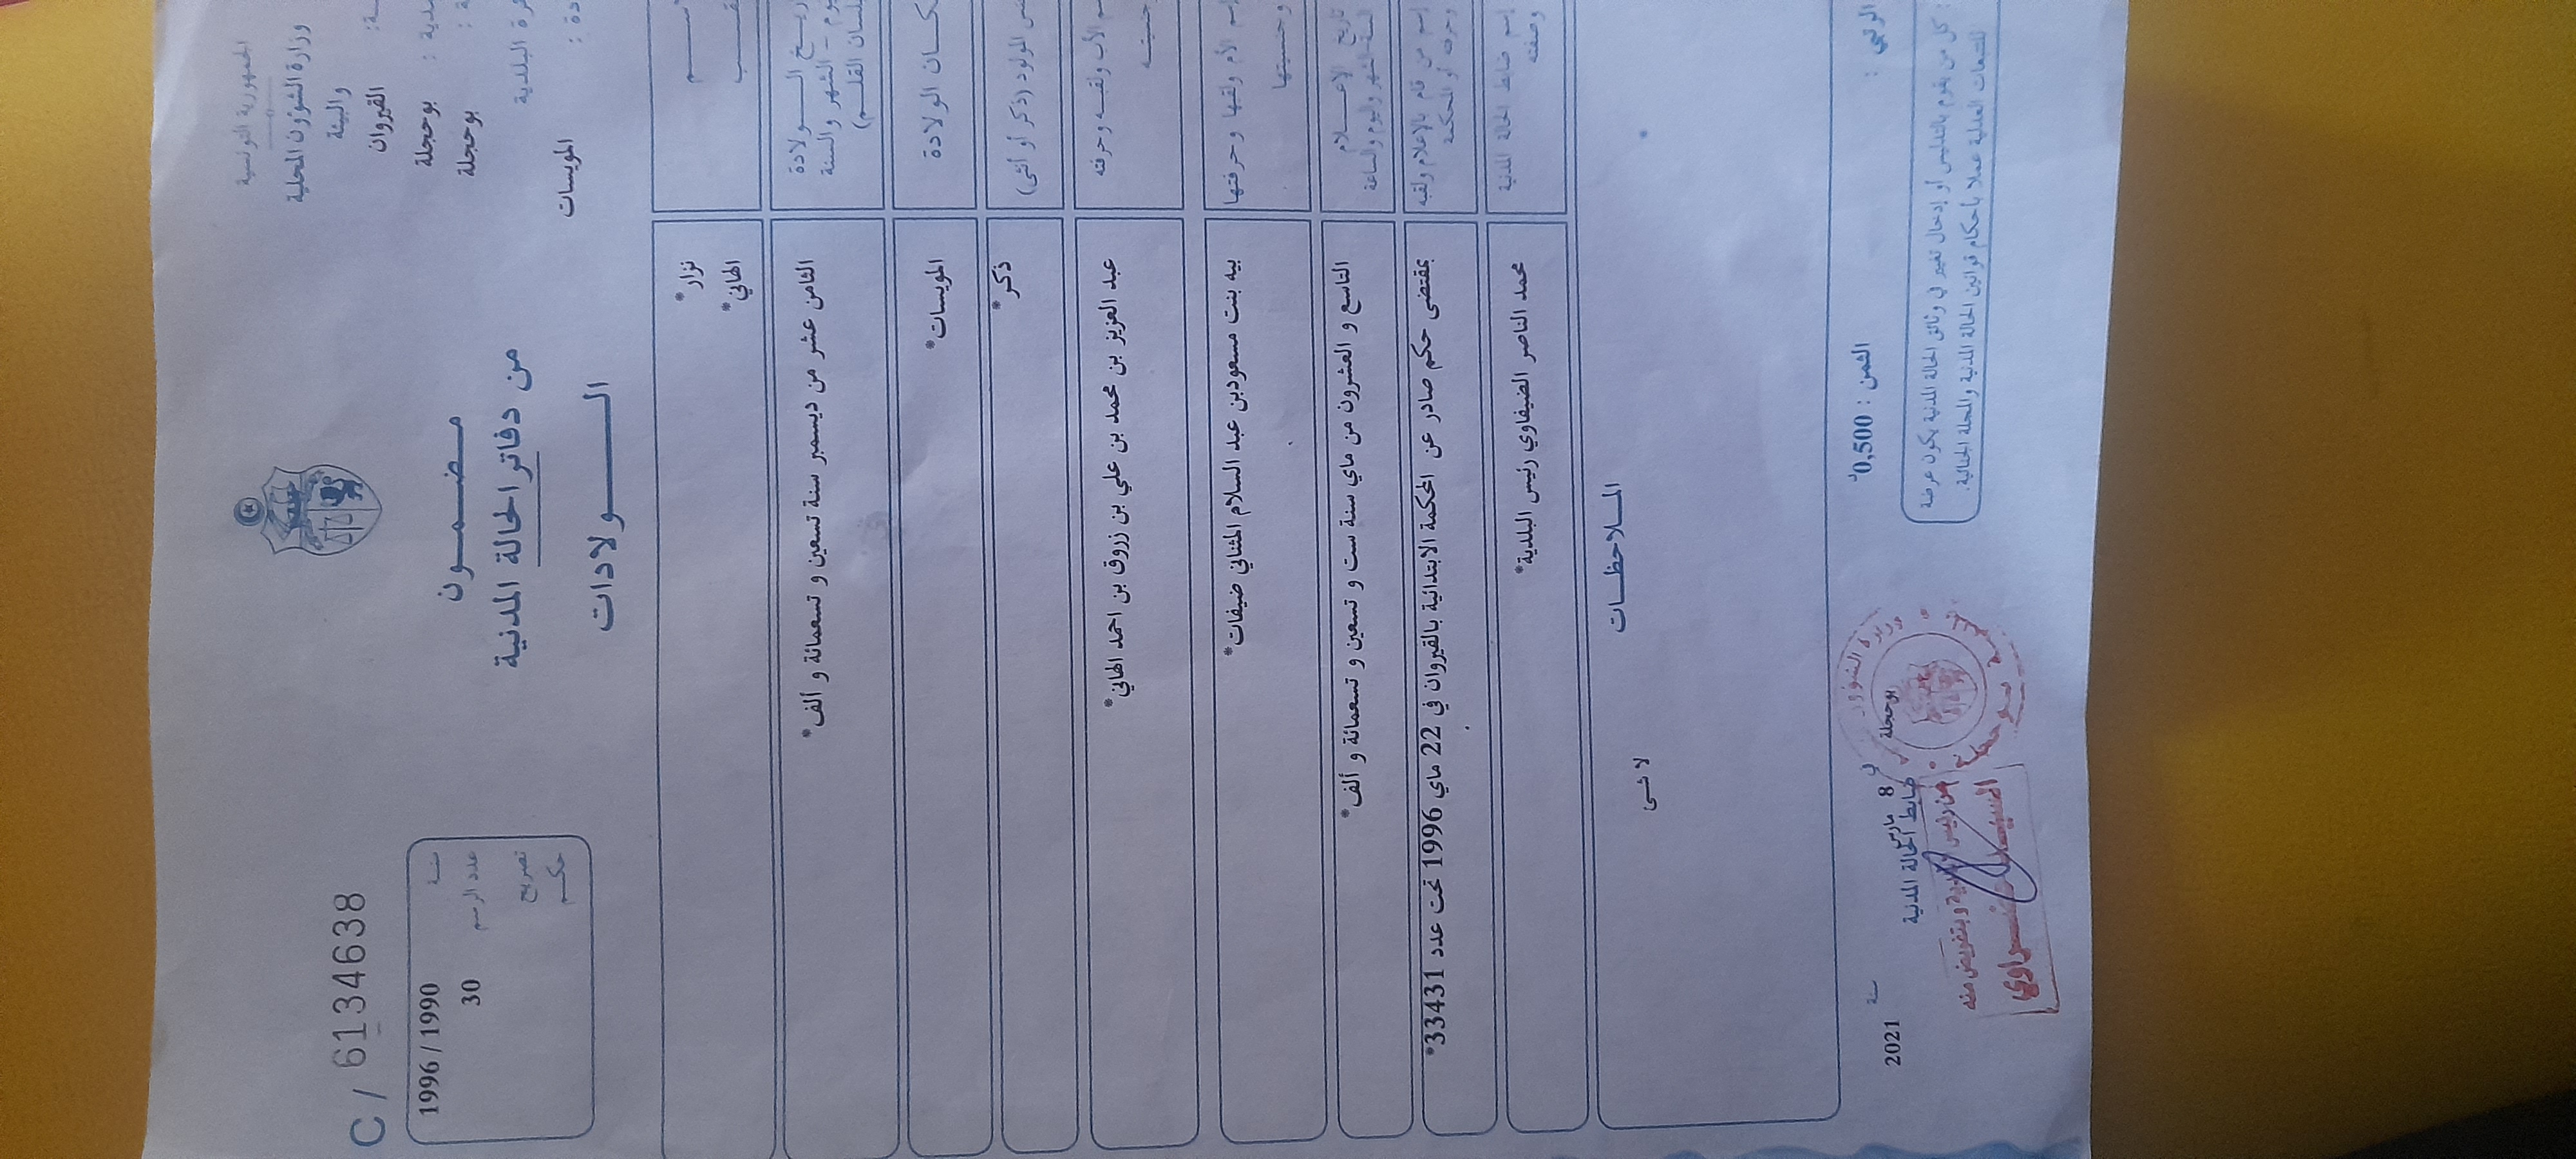 الجمهورية التونسية
وزارة الشؤون المحلية
والبيئة
القيروان
بوحجلة
بوحجلة
المويسات
مضمون
من دفاتر الحالة المدنية
الولادات
C / 6134638
سنة 1996 / 1990
عدد الرسم 30
تصريح
حكم
نزار*
الهاني*
الولادة
الشهر والسنة
بلسان القلم)
الثامن عشر من ديسمبر سنة تسعين و تسعمائة و ألف*
مكان الولادة
المويسات*
المولود (ذكر أو أنثى)
ذكر*
الأب ولقبه وحرفته
عبد العزيز بن محمد بن علي بن زروق بن احمد الهاني*
إسم الأم ولقبها و حرفتها
وجنسيتها
بيه بنت مسعودبن عبد السلام المثناني ضيفات*
تاريخ الإعلام
السنة والشهر واليوم والساعة
التاسع و العشرون من ماي سنة ست و تسعين و تسعمائة و ألف*
إسم من قام بالإعلام ولقبه
وحرفته أو المحكمة
بمقتضى حكم صادر عن المحكمة الابتدائية بالقيروان في 22 ماي 1996 تحت عدد 33431*
إسم ضابط الحالة المدنية
وصفته
محمد الناصر الضيفاوي رئيس البلدية*
الملاحظات
لا شئ
الثمن : 0,500د
بوحجلة في 8 مارس سنة 2021
ضابط الحالة المدنية
كل من يقوم بالتدليس أو إدخال تغيير في وثائق الحالة المدنية يكون عرضة
للتتبعات العدلية عملا بأحكام قوانين الحالة المدنية والمجلة الجنائية.